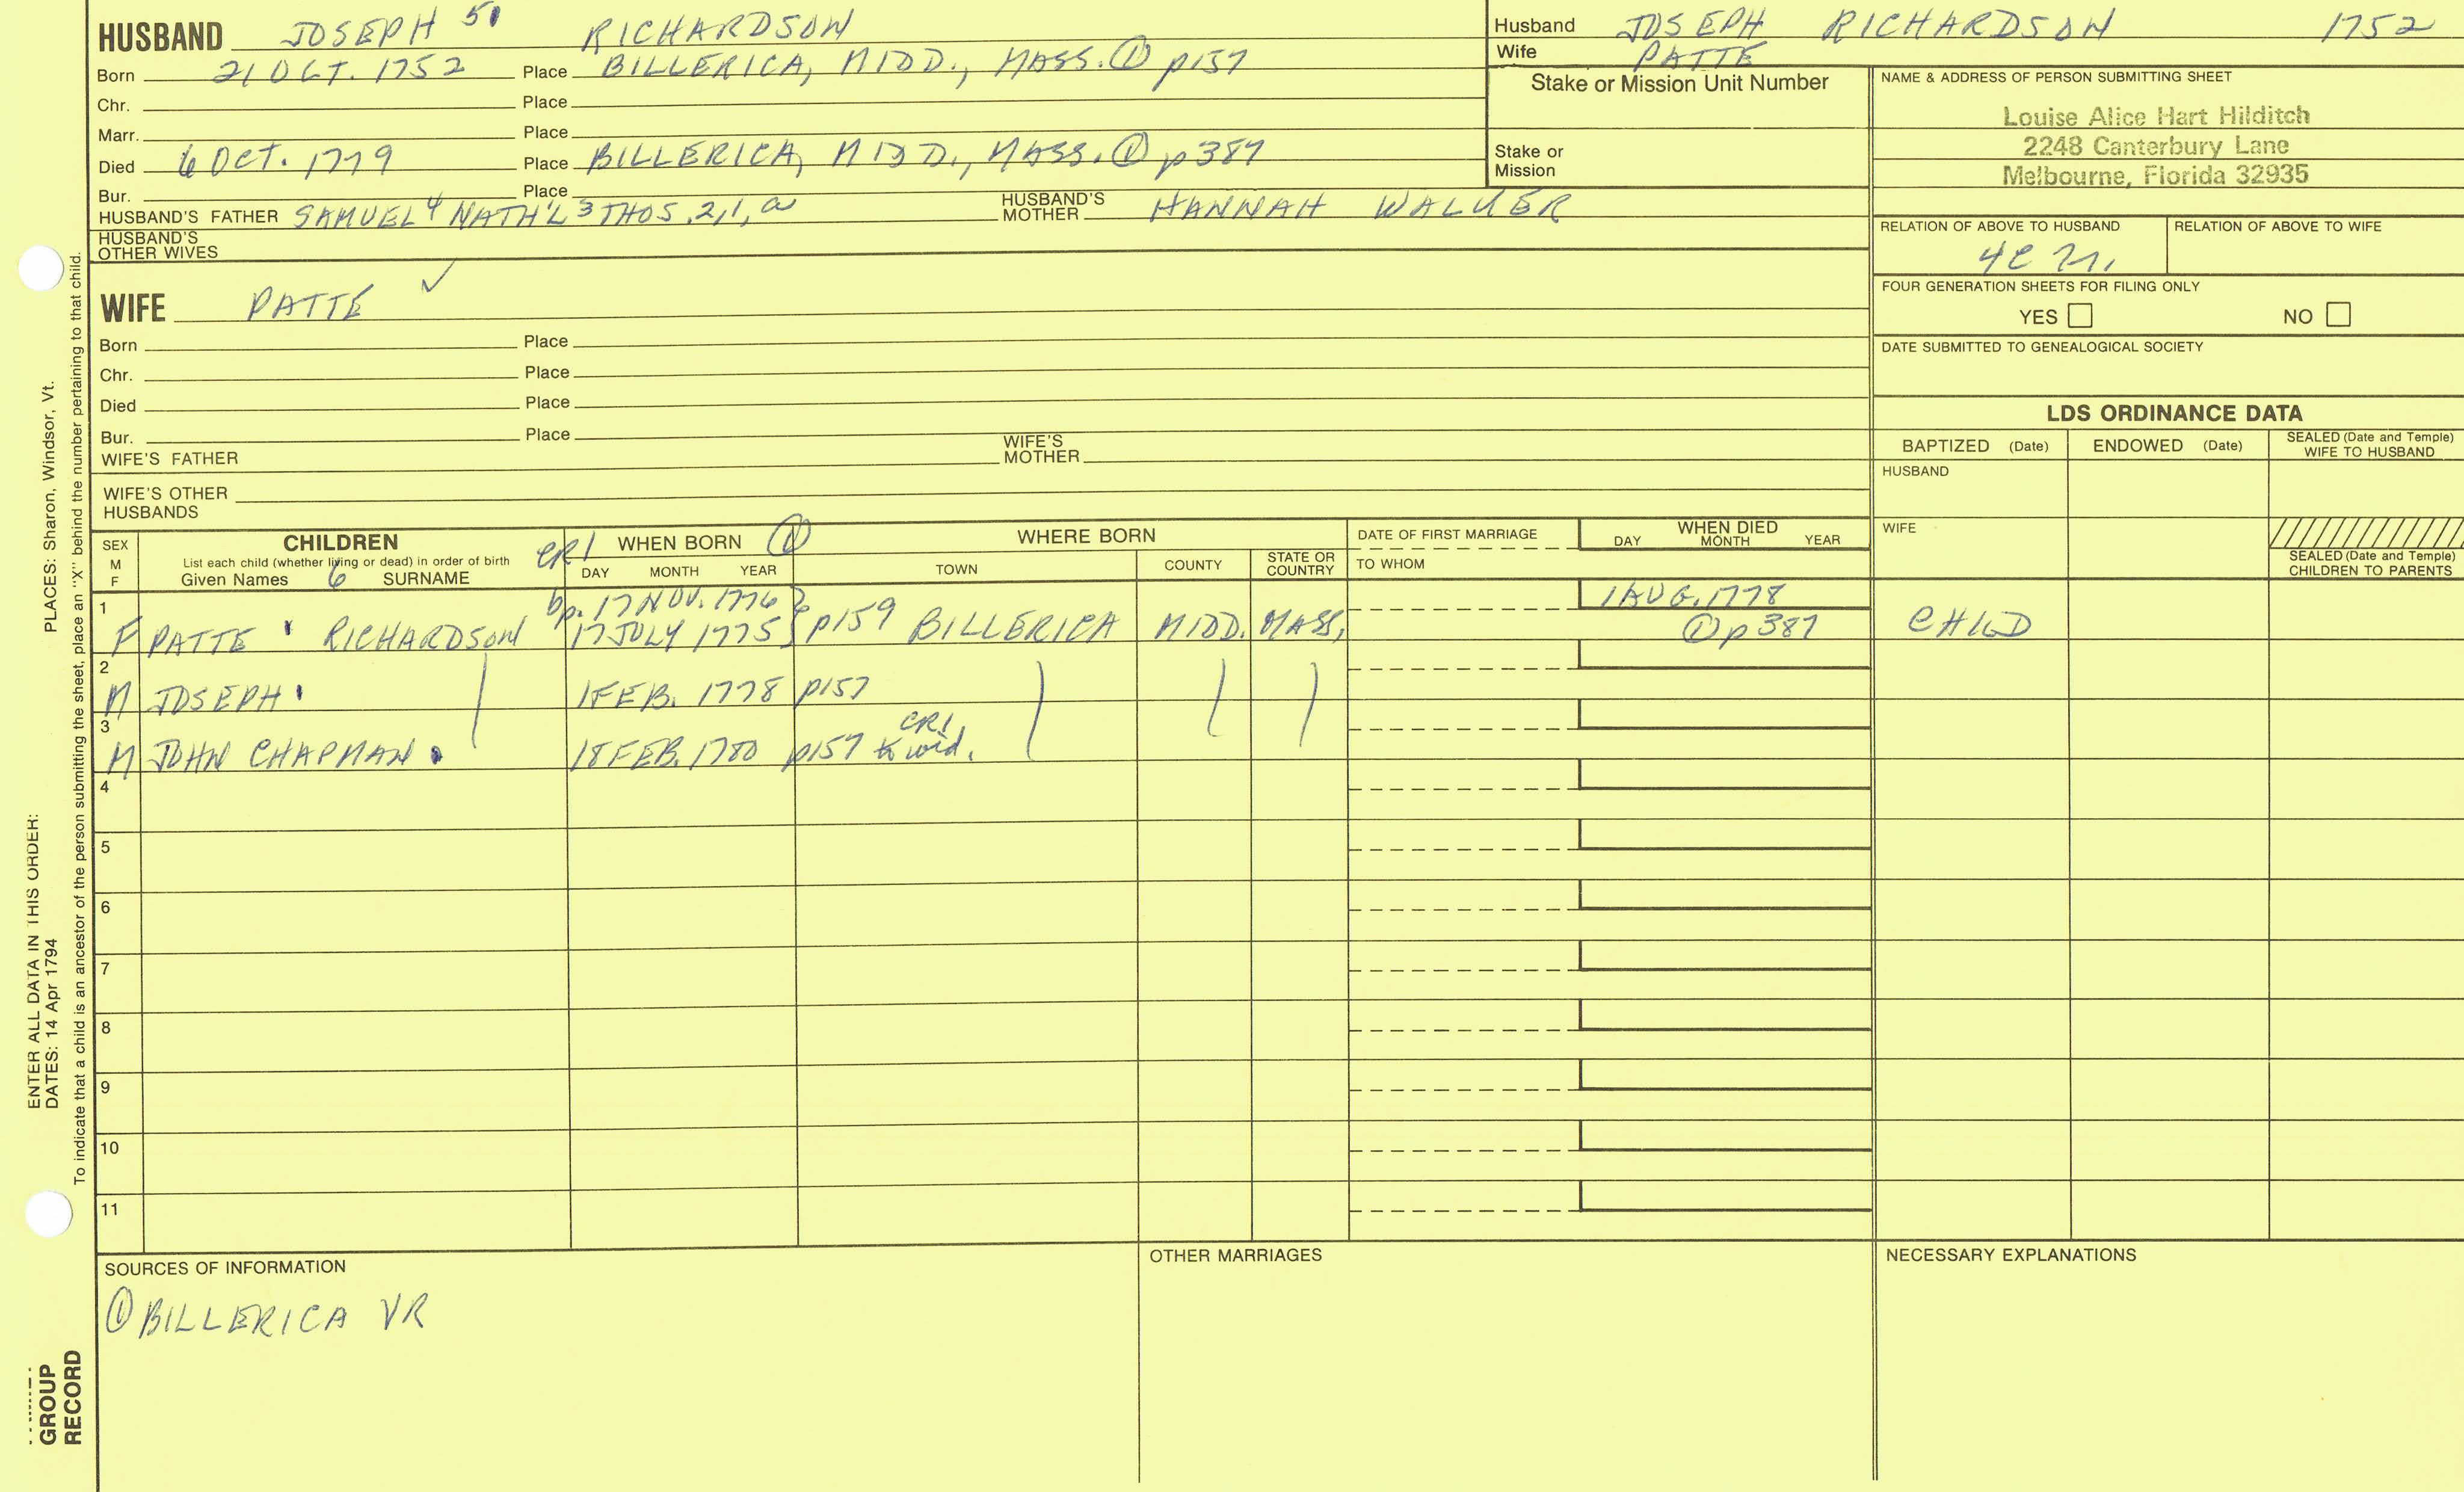 HUSBAND JOSEPH 5 RICHARDSON
Born 21 OCT. 1752 Place BILLERICA, MIDD., MASS. ① p157
Chr. Place
Marr. Place
Died 6 OCT. 1779 Place BILLERICA, MIDD., MASS. ① p387
Bur. Place
HUSBAND'S FATHER SAMUEL 4 NATH'L 3 THOS. 2, 1, a HUSBAND'S MOTHER HANNAH WALKER
HUSBAND'S OTHER WIVES
Husband JOSEPH RICHARDSON 1752
Wife PATTE
Stake or Mission Unit Number
Stake or Mission
NAME & ADDRESS OF PERSON SUBMITTING SHEET
Louise Alice Hart Hilditch
2248 Canterbury Lane
Melbourne, Florida 32935
RELATION OF ABOVE TO HUSBAND RELATION OF ABOVE TO WIFE
FOUR GENERATION SHEETS FOR FILING ONLY
YES NO
DATE SUBMITTED TO GENEALOGICAL SOCIETY
WIFE PATTE ✓
Born Place
Chr. Place
Died Place
Bur. Place
WIFE'S FATHER WIFE'S MOTHER
WIFE'S OTHER HUSBANDS
LDS ORDINANCE DATA
BAPTIZED (Date) ENDOWED (Date) SEALED (Date and Temple) WIFE TO HUSBAND
HUSBAND
WIFE
SEALED (Date and Temple) CHILDREN TO PARENTS
SEX M F
CHILDREN
List each child (whether living or dead) in order of birth
Given Names 6 SURNAME
CR1 WHEN BORN ①
DAY MONTH YEAR
WHERE BORN
TOWN COUNTY STATE OR COUNTRY
DATE OF FIRST MARRIAGE
TO WHOM
WHEN DIED
DAY MONTH YEAR
1 bp. 17 NOV. 1776 1 AUG. 1778
F PATTE RICHARDSON 17 JULY 1775 p159 BILLERICA MIDD. MASS. ① p387 CHILD
2
M JOSEPH 1 FEB. 1778 p157
3 CR1
M JOHN CHAPMAN 18 FEB. 1780 p157 wid.
4
5
6
7
8
9
10
11
SOURCES OF INFORMATION
① BILLERICA VR
OTHER MARRIAGES
NECESSARY EXPLANATIONS
ENTER ALL DATA IN THIS ORDER:
DATES: 14 Apr 1794 PLACES: Sharon, Windsor, Vt.
To indicate that a child is an ancestor of the person submitting the sheet, place an "X" behind the number pertaining to that child.
GROUP
RECORD